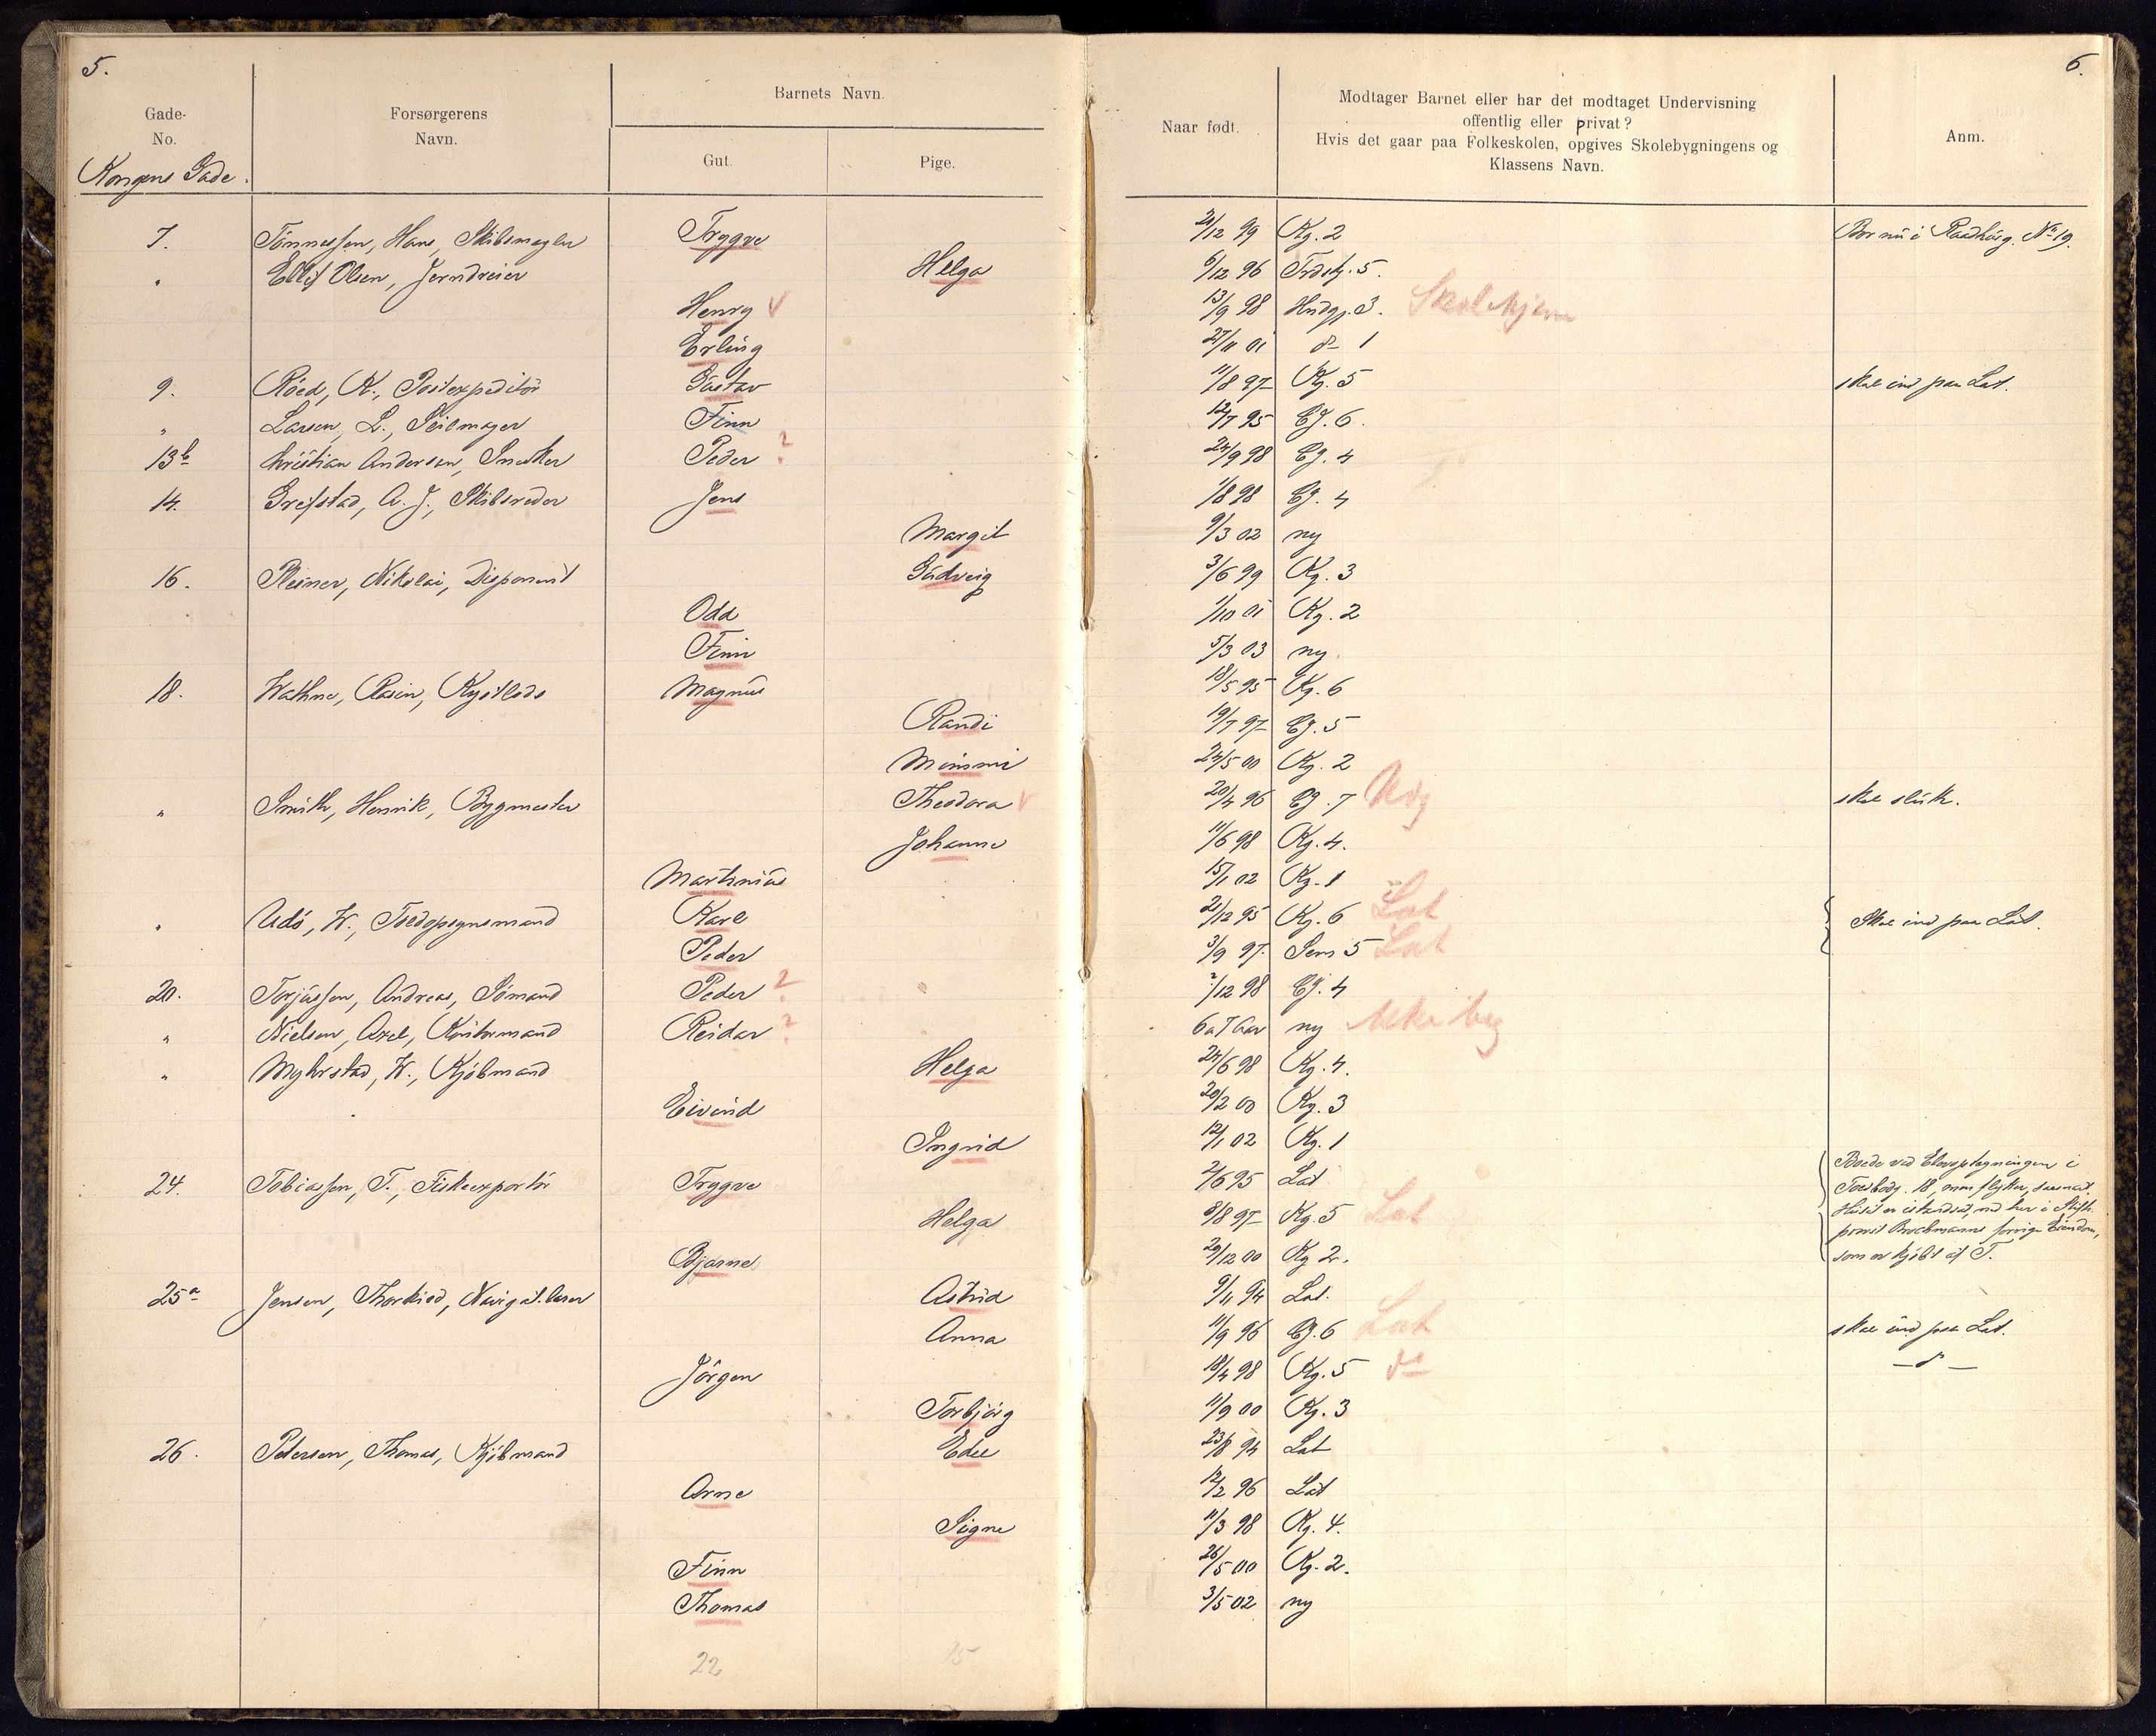 5.
6.
Gade-
No.
Forsørgerens
Navn.
Barnets Navn.
Gut.
Pige.
Naar født.
Modtager Barnet eller har det modtaget Undervisning
offentlig eller privat?
Hvis det gaar paa Folkeskolen, opgives Skolebygningens og
Klassens Navn.
Anm.
Kongens Gade.
7. Tönnessen, Hans, Skibsmægler Trygve 21/12 99 Kg. 2 Bor nu i Raadhusg. No 19.
" Ellef Olsen, Jerndreier Helga 6/12 96 5.
Henry V 13/9 98 3. Skolehjem
Erling 27/11 01 do 1
9. Röed, K., Postexpeditör Gustav 11/8 97 Kg. 5 skal ind paa Lat.
" Larsen, L., Seilmager Finn 12/7 95 Eg. 6.
13b Kristian Andersen, Snedker Peder ? 24/9 98 Eg. 4
14. Grefstad, A. J., Skibsreder Jens 1/8 98 Eg. 4
Margit 9/3 02 ny
16. Pleiner, Nikolai, Disponent Gudveig 3/6 99 Kg. 3
Odd 1/10 01 Kg. 2
Finn 5/3 03 ny
18. Wathne, Rasin, Kystlods Magnus 18/5 95 Kg. 6
Randi 19/7 97 Eg. 5
Mimmi 24/5 00 Kg. 2
" Smith, Henrik, Bygmester Theodora V 20/4 96 Eg. 7 Udg skal slutte.
Johanne 11/6 98 Kg. 4.
Martinius 15/1 02 Kg. 1
" Udö, W., Karl 21/12 95 Kg. 6 Lat Skal ind paa Lat.
Peder 3/9 97 Sem 5 Lat
20. Torjussen, Andreas, Sömand Peder ? 2/12 98 Eg. 4
" Nielsen, Axel, Kontormand Reidar ? 6 a 7 Aar ny
" Myhrstad, W., Kjöbmand Helga 24/6 98 Kg. 4.
Eivind 20/2 00 Kg. 3
Ingrid 12/1 02 Kg. 1
24. Tobiassen, T., Fiskeexportör Trygve 2/6 95 Lat Boede ved Elevoptagningen i
Helga 8/8 97 Kg. 5 Lat 18, men flytter, saasnart
Huset er istandsat, ned her i
forrige Eiendom,
Bjarne 29/12 00 Kg 2. som er kjöbt af T.
25a Jensen, Thorkild, Navigat.lærer Astrid 9/11 94 Lat.
Anna 11/9 96 Eg. 6 Lat skal ind paa Lat.
Jörgen 18/4 98 Kg. 5 do — d —
Torbjörg 11/9 00 Kg. 3
26. Petersen, Thomas, Kjöbmand Edel 23/8 94 Lat
Arne 12/2 96 Lat
Signe 11/3 98 Kg. 4.
Finn 26/5 00 Kg. 2.
Thomas 3/5 02 ny
22 15